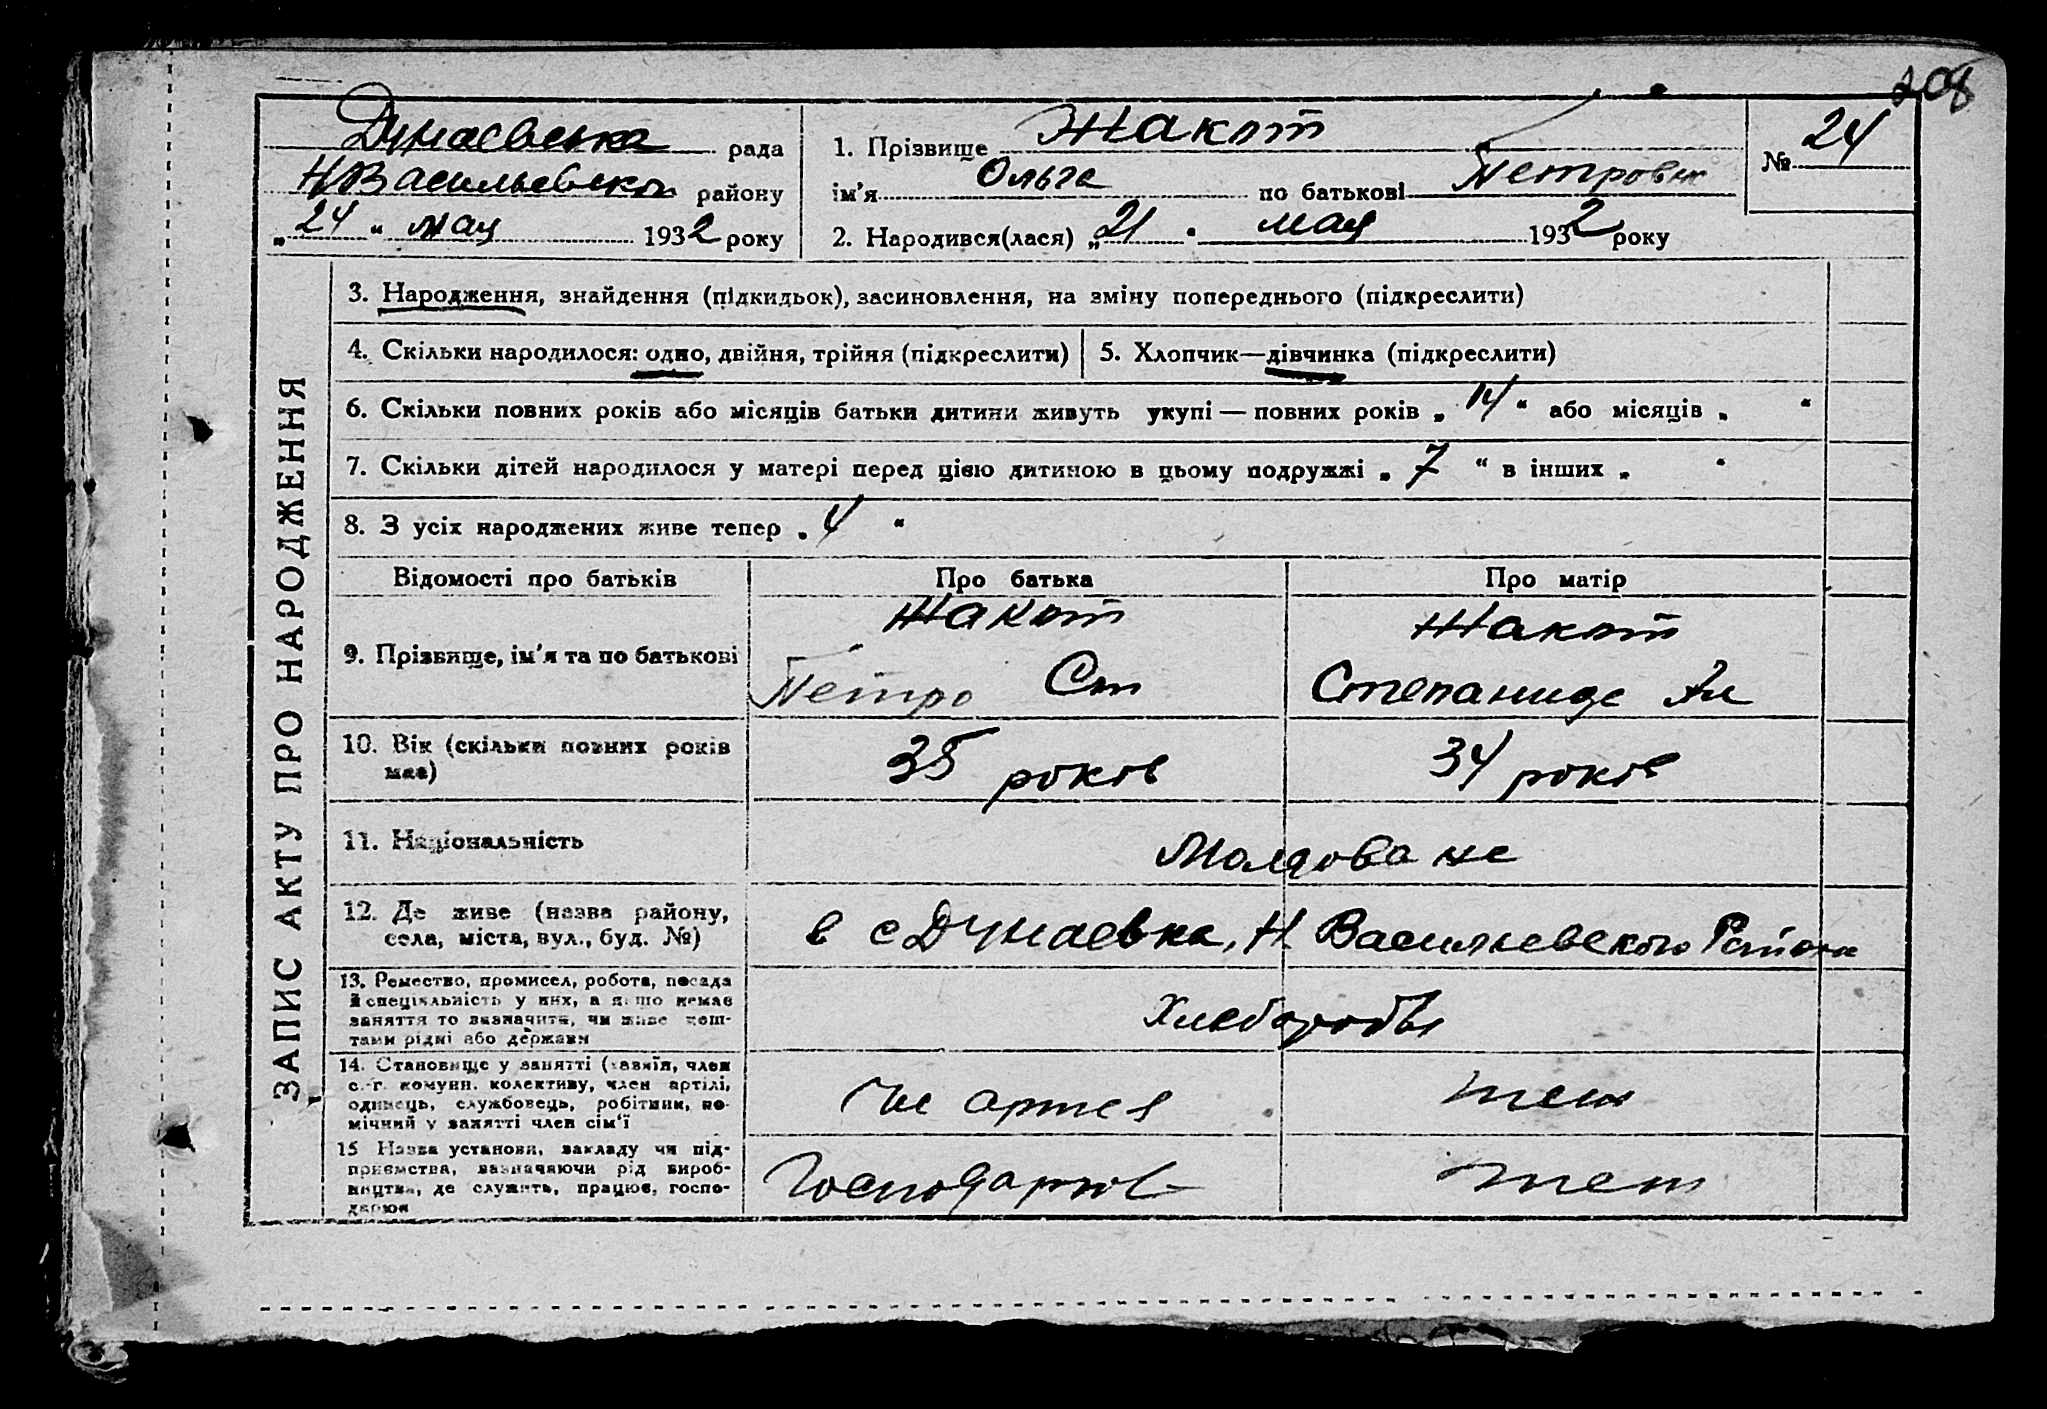 208
Дунаевська рада
Н Васильевского району
„24“ мая 1932 року
1. Прізвище Жакот
ім'я Ольга по батькові Петровна
2. Народився(лася) „21" мая 1932 року
№ 24
ЗАПИС АКТУ ПРО НАРОДЖЕННЯ
3. Народження, знайдення (підкидьок), засиновлення, на зміну попереднього (підкреслити)
4. Скільки народилося: одно, двійня, трійня (підкреслити)
5. Хлопчик—дівчинка (підкреслити)
6. Скільки повних років або місяців батьки дитини живуть укупі — повних років „14“ або місяців „ “
7. Скільки дітей народилося у матері перед цією дитиною в цьому подружжі „7“ в інших „ “
8. З усіх народжених живе тепер „4“
Відомості про батьків Про батька Про матір
9. Прізвище, ім'я та по батькові
Жакот
Петро Ст
Жакот
Степанида
10. Вік (скільки повних років
має)
35 років
34 років
11. Національність
Молдоване
12. Де живе (назва району,
села, міста, вул., буд. №)
в с Дунаевка, Н Васильевского Района
13. Ремество, промисел, робота, посада
й спеціяльність у них, а якщо немає
заняття то зазначити, чи живе кош-
тами рідні або держави
Хлеборобы
14. Становище у занятті (хазяїн, член
с.-г. комуни. колективу, член артілі,
одинець, службовець, робітник, по-
мічний у занятті член сім'ї
Чле артел
теж
15 Назва установи, закладу чи під-
приємства, зазначаючи рід вироб-
ництва, де служить, працює, госпо-
дарює
теж